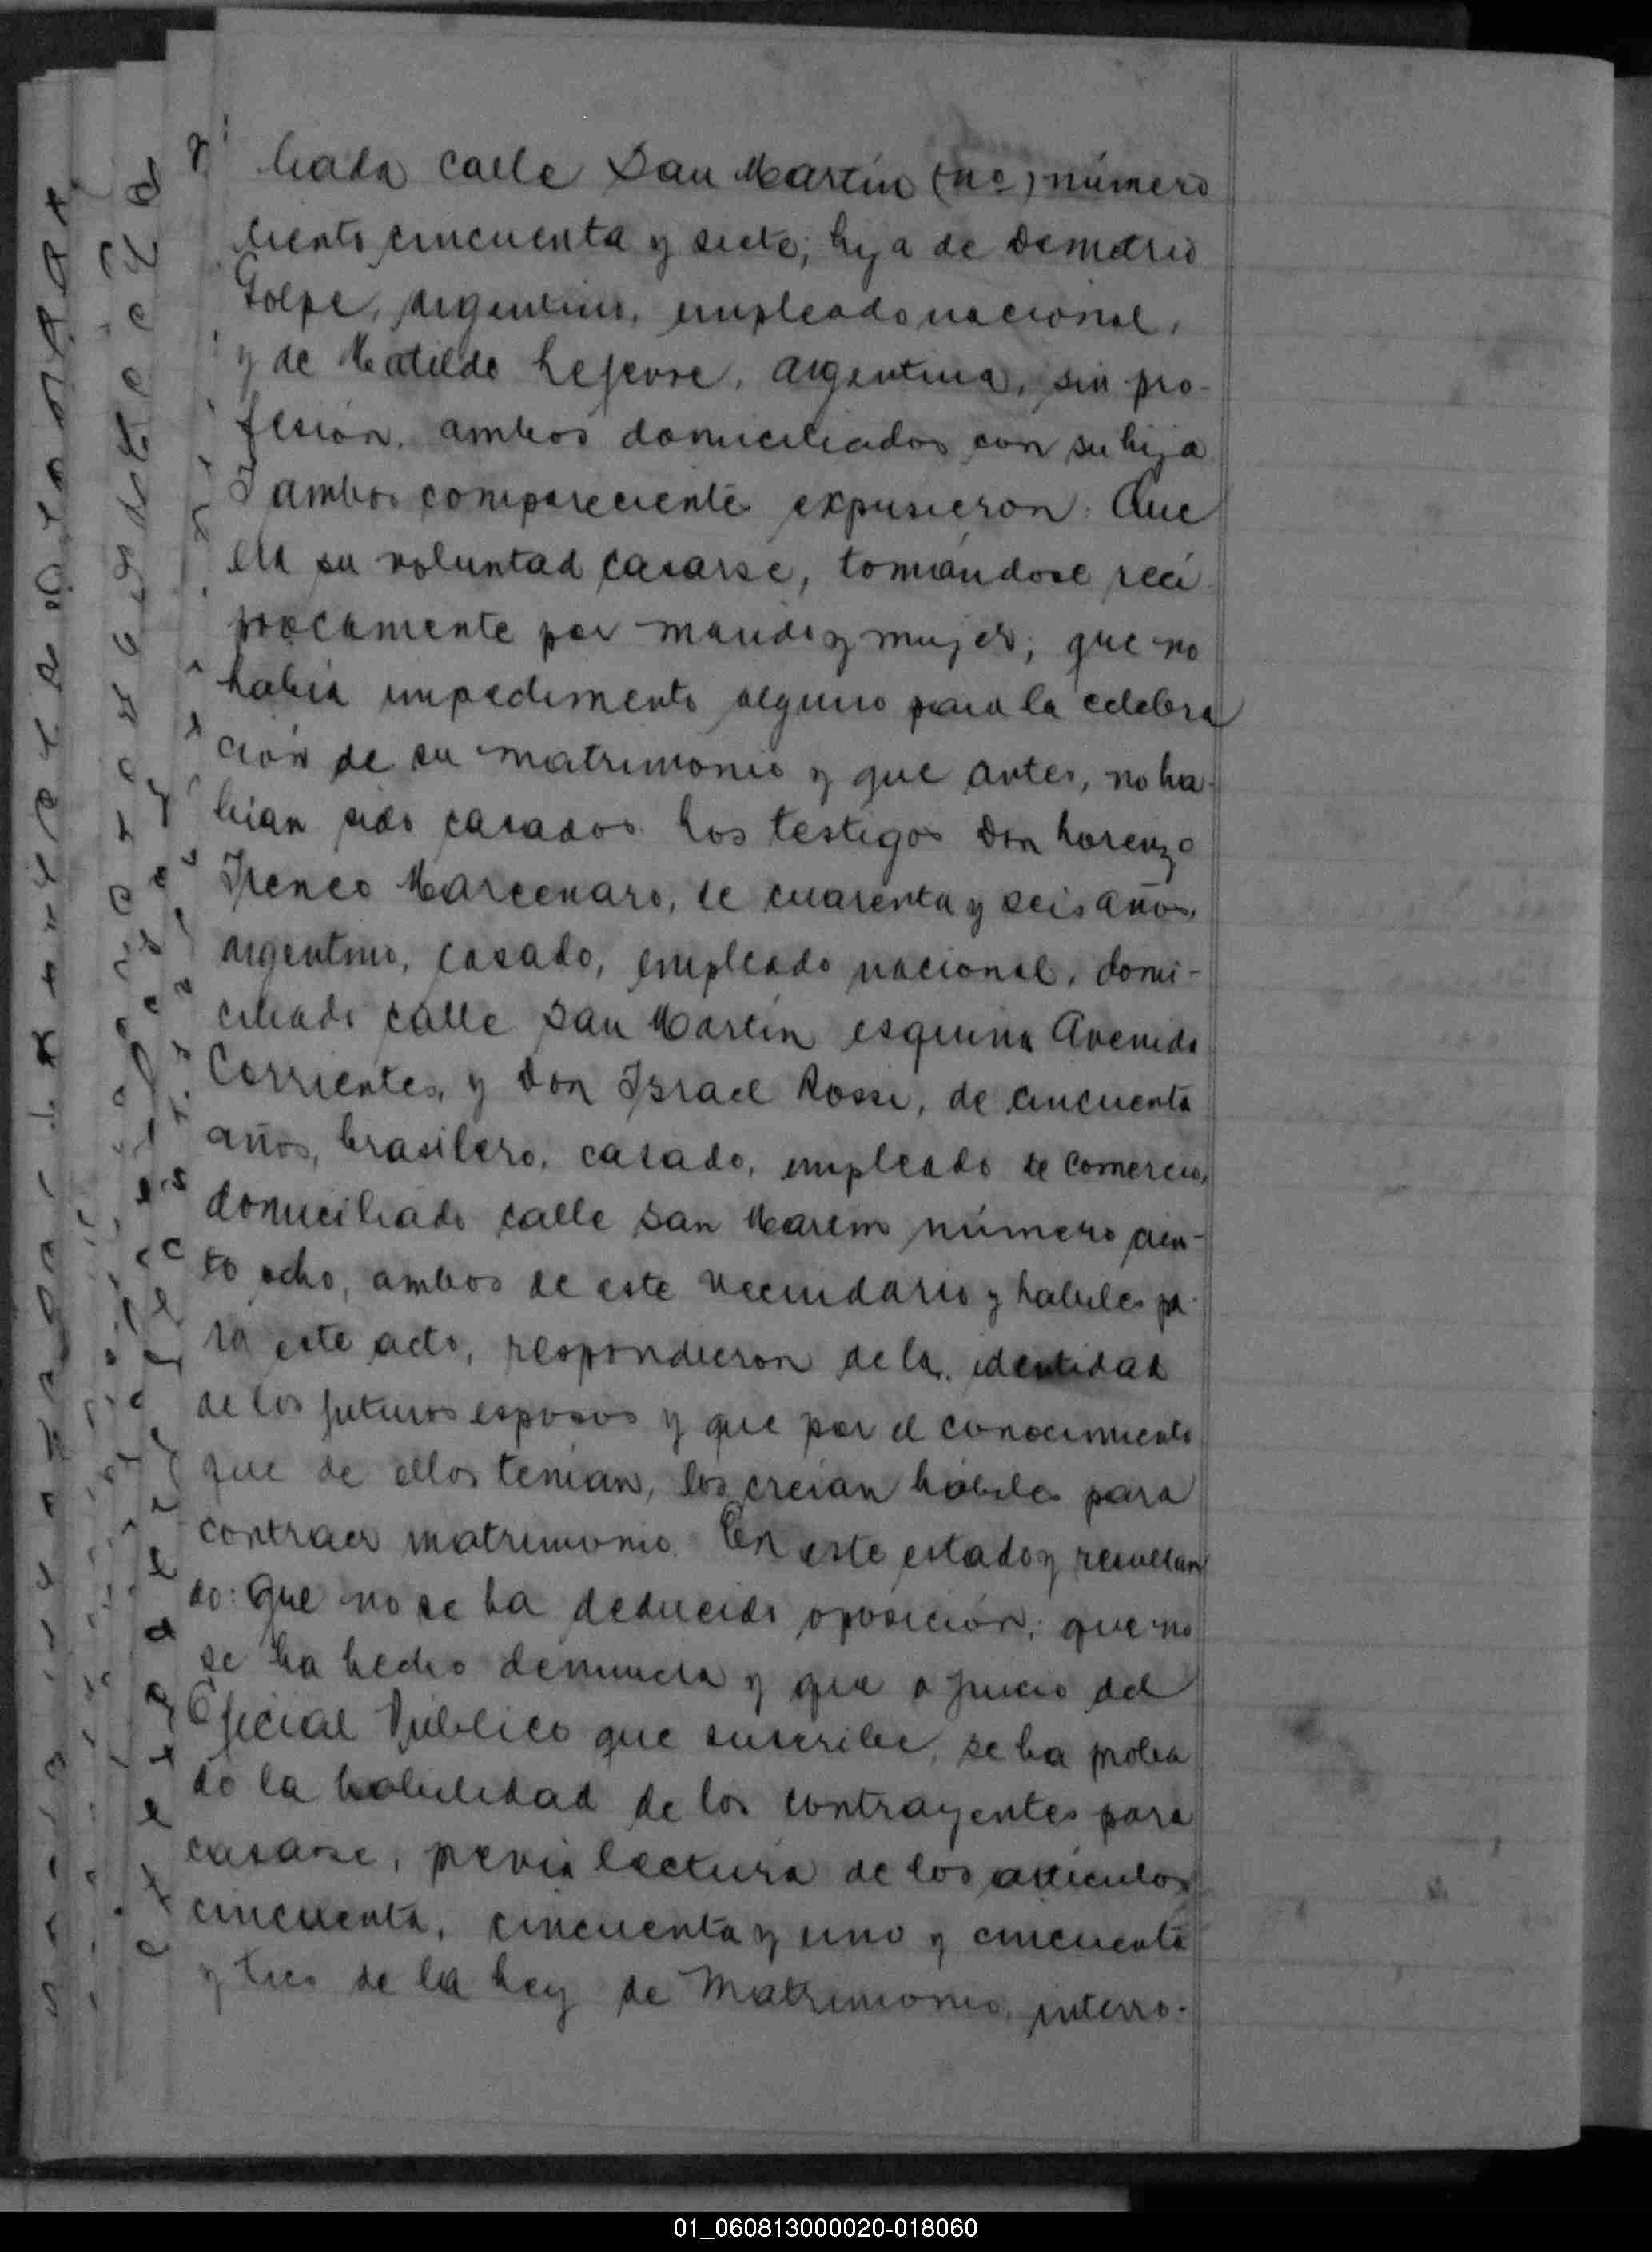 liada calle San Martín (nº) número
ciento cincuenta y siete; hija de Demetrio
Golpe, argentino, empleado nacional,
y de Matilde Lefevre, argentina, sin pro-
fesión, ambos domiciliados con su hija
Y ambos comparecientes expusieron: Que
era su voluntad casarse, tomándose recí
procamente por marido y mujer; que no
había impedimento alguno para la celebra
ción de su matrimonio y que antes, no ha-
bían sido casados. Los testigos Don Lorenzo
Ireneo Marcenaro, de cuarenta y seis años,
argentino, casado, empleado nacional, domi-
ciliado calle San Martín esquina Avenida
Corrientes, y Don Israel Rossi, de cincuenta
años, brasilero, casado, empleado de comercio,
domiciliado calle San Martín número cien-
to ocho, ambos de este vecindario y habiles pa-
ra este acto, respondieron de la identidad
de los futuros esposos y que por el conocimiento
que de ellos tenían, los creían hábiles para
contraer matrimonio. En este estado y resultan
do: Que no se ha deducido oposición; que no
se ha hecho denuncia y que a juicio del
Oficial Público que suscribe, se ha proba
do la habilidad de los contrayentes para
casarse, previa lectura de los artículos
cincuenta, cincuenta y uno y cincuenta
y tres de la Ley de Matrimonio, interro-
01_060813000020-018060